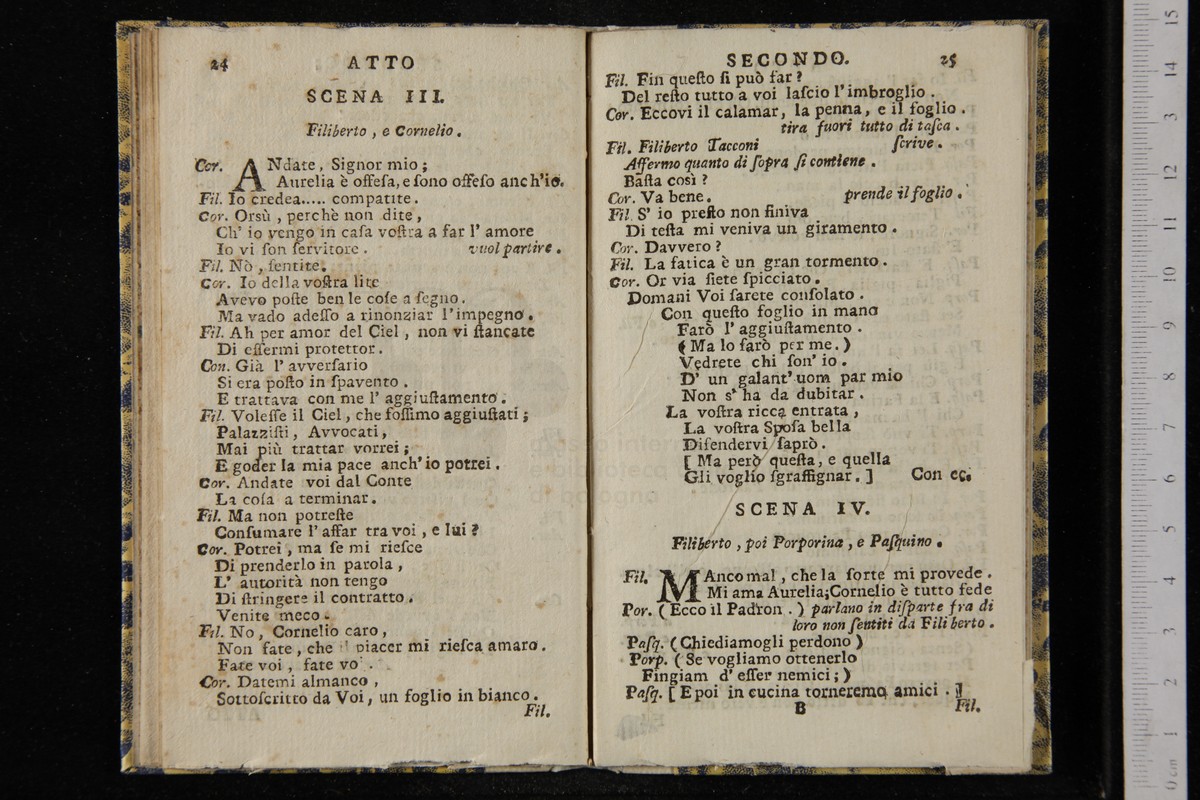 24 ATTO
SCENA III.
Filiberto, e Cornelio.
Cor. ANdate, Signor mio;
Aurelia è offeſa, e ſono offeſo anch'io.
Fil. Io credea..... compatite.
Cor. Orsù, perchè non dite,
Ch' io vengo in caſa voſtra a far l' amore
Io vi ſon ſervitore. vuol partire.
Fil. Nò, ſentite.
Cor. Io della voſtra lite
Avevo poſte ben le coſe a ſegno.
Ma vado adeſſo a rinonziar l'impegno.
Fil. Ah per amor del Ciel, non vi ſtancate
Di eſſermi protettor.
Con. Già l' avverſario
Si era poſto in ſpavento.
E trattava con me l' aggiuſtamento.
Fil. Voleſſe il Ciel, che foſſimo aggiuſtati;
Palazziſti, Avvocati,
Mai più trattar vorrei;
E goder la mia pace anch' io potrei.
Cor. Andate voi dal Conte
La coſa a terminar.
Fil. Ma non potreſte
Conſumare l' affar tra voi, e lui?
Cor. Potrei, ma ſe mi rieſce
Di prenderlo in parola,
L' autorità non tengo
Di ſtringere il contratto.
Venite meco.
Fil. No, Cornelio caro,
Non fate, che piacer mi rieſca amaro.
Fate voi, fate vo
Cor. Datemi almanco,
Sottoſcritto da Voi, un foglio in bianco.
Fil.
SECONDO. 25
Fil. Fin queſto ſi può far?
Del reſto tutto a voi laſcio l' imbroglio.
Cor. Eccovi il calamar, la penna, e il foglio.
tira fuori tutto di taſca.
Fil. Filiberto Tacconi ſcrive.
Affermo quanto di ſopra ſi contiene.
Baſta così?
Cor. Va bene. prende il foglio.
Fil. S' io preſto non finiva
Di teſta mi veniva un giramento.
Cor. Davvero?
Fil. La fatica è un gran tormento.
Cor. Or via ſiete ſpicciato.
Domani Voi ſarete conſolato.
Con queſto foglio in mano
Farò l' aggiuſtamento.
(Ma lo farò per me.)
Vedrete chi ſon' io.
D' un galant' uom par mio
Non s' ha da dubitar.
La voſtra ricca entrata,
La voſtra Spoſa bella
Difendervi ſaprò.
[Ma però queſta, e quella
Gli voglio ſgraffignar.] Con ec.
SCENA IV.
Filiberto, poi Porporina, e Paſquino.
Fil. MAnco mal, che la ſorte mi provede.
Mi ama Aurelia; Cornelio è tutto fede
Por. (Ecco il Padron.) parlano in diſparte fra di
loro non ſentiti da Filiberto.
Paſq. (Chiediamogli perdono)
Porp. (Se vogliamo ottenerlo
Fingiam d' eſſer nemici;)
Paſq. [E poi in cucina torneremo amici.]
B Fil.